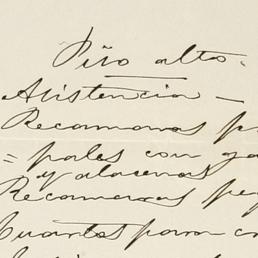 Piso alto.
Asistencia —
Recamaras p
= pales con ga
y alacenas
Recamaras pe
Cuartos para c